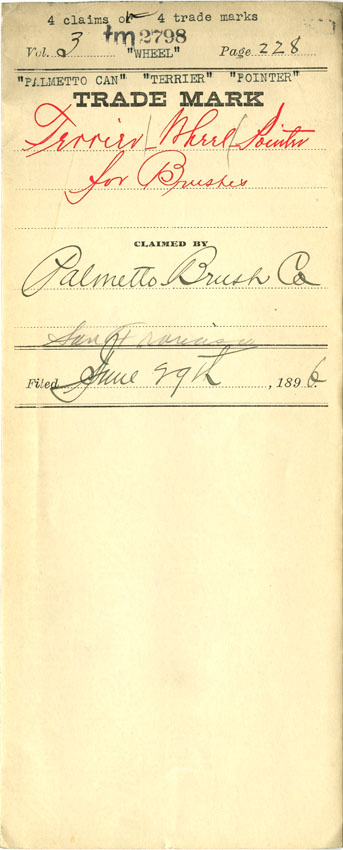 4 claims of 4 trade marks
tm 2798
Vol. 3 "WHEEL" Page 228
"PALMETTO CAN" "TERRIER" "POINTER"
TRADE MARK
Terrier Wheel Pointer
for Brushes
CLAIMED BY
Palmetto Brush Co
San Francisco
Filed June 29th, 1896.